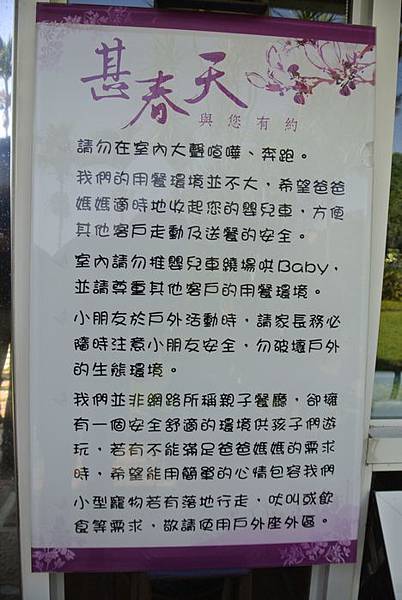 甚春天
與您有約
請勿在室內大聲喧嘩、奔跑。
我們的用餐環境並不大，希望爸爸
媽媽適時地收起您的嬰兒車，方便
其他客戶走動及送餐的安全。
室內請勿推嬰兒車繞場哄Baby，
並請尊重其他客戶的用餐環境。
小朋友於戶外活動時，請家長務必
隨時注意小朋友安全，勿破壞戶外
的生態環境。
我們並非網路所稱親子餐廳，卻擁
有一個安全舒適的環境供孩子們遊
玩，若有不能滿足爸爸媽媽的需求
時，希望能用簡單的心情包容我們
小型寵物若有落地行走，吠叫或飲
食等需求，敬請使用戶外座外區。